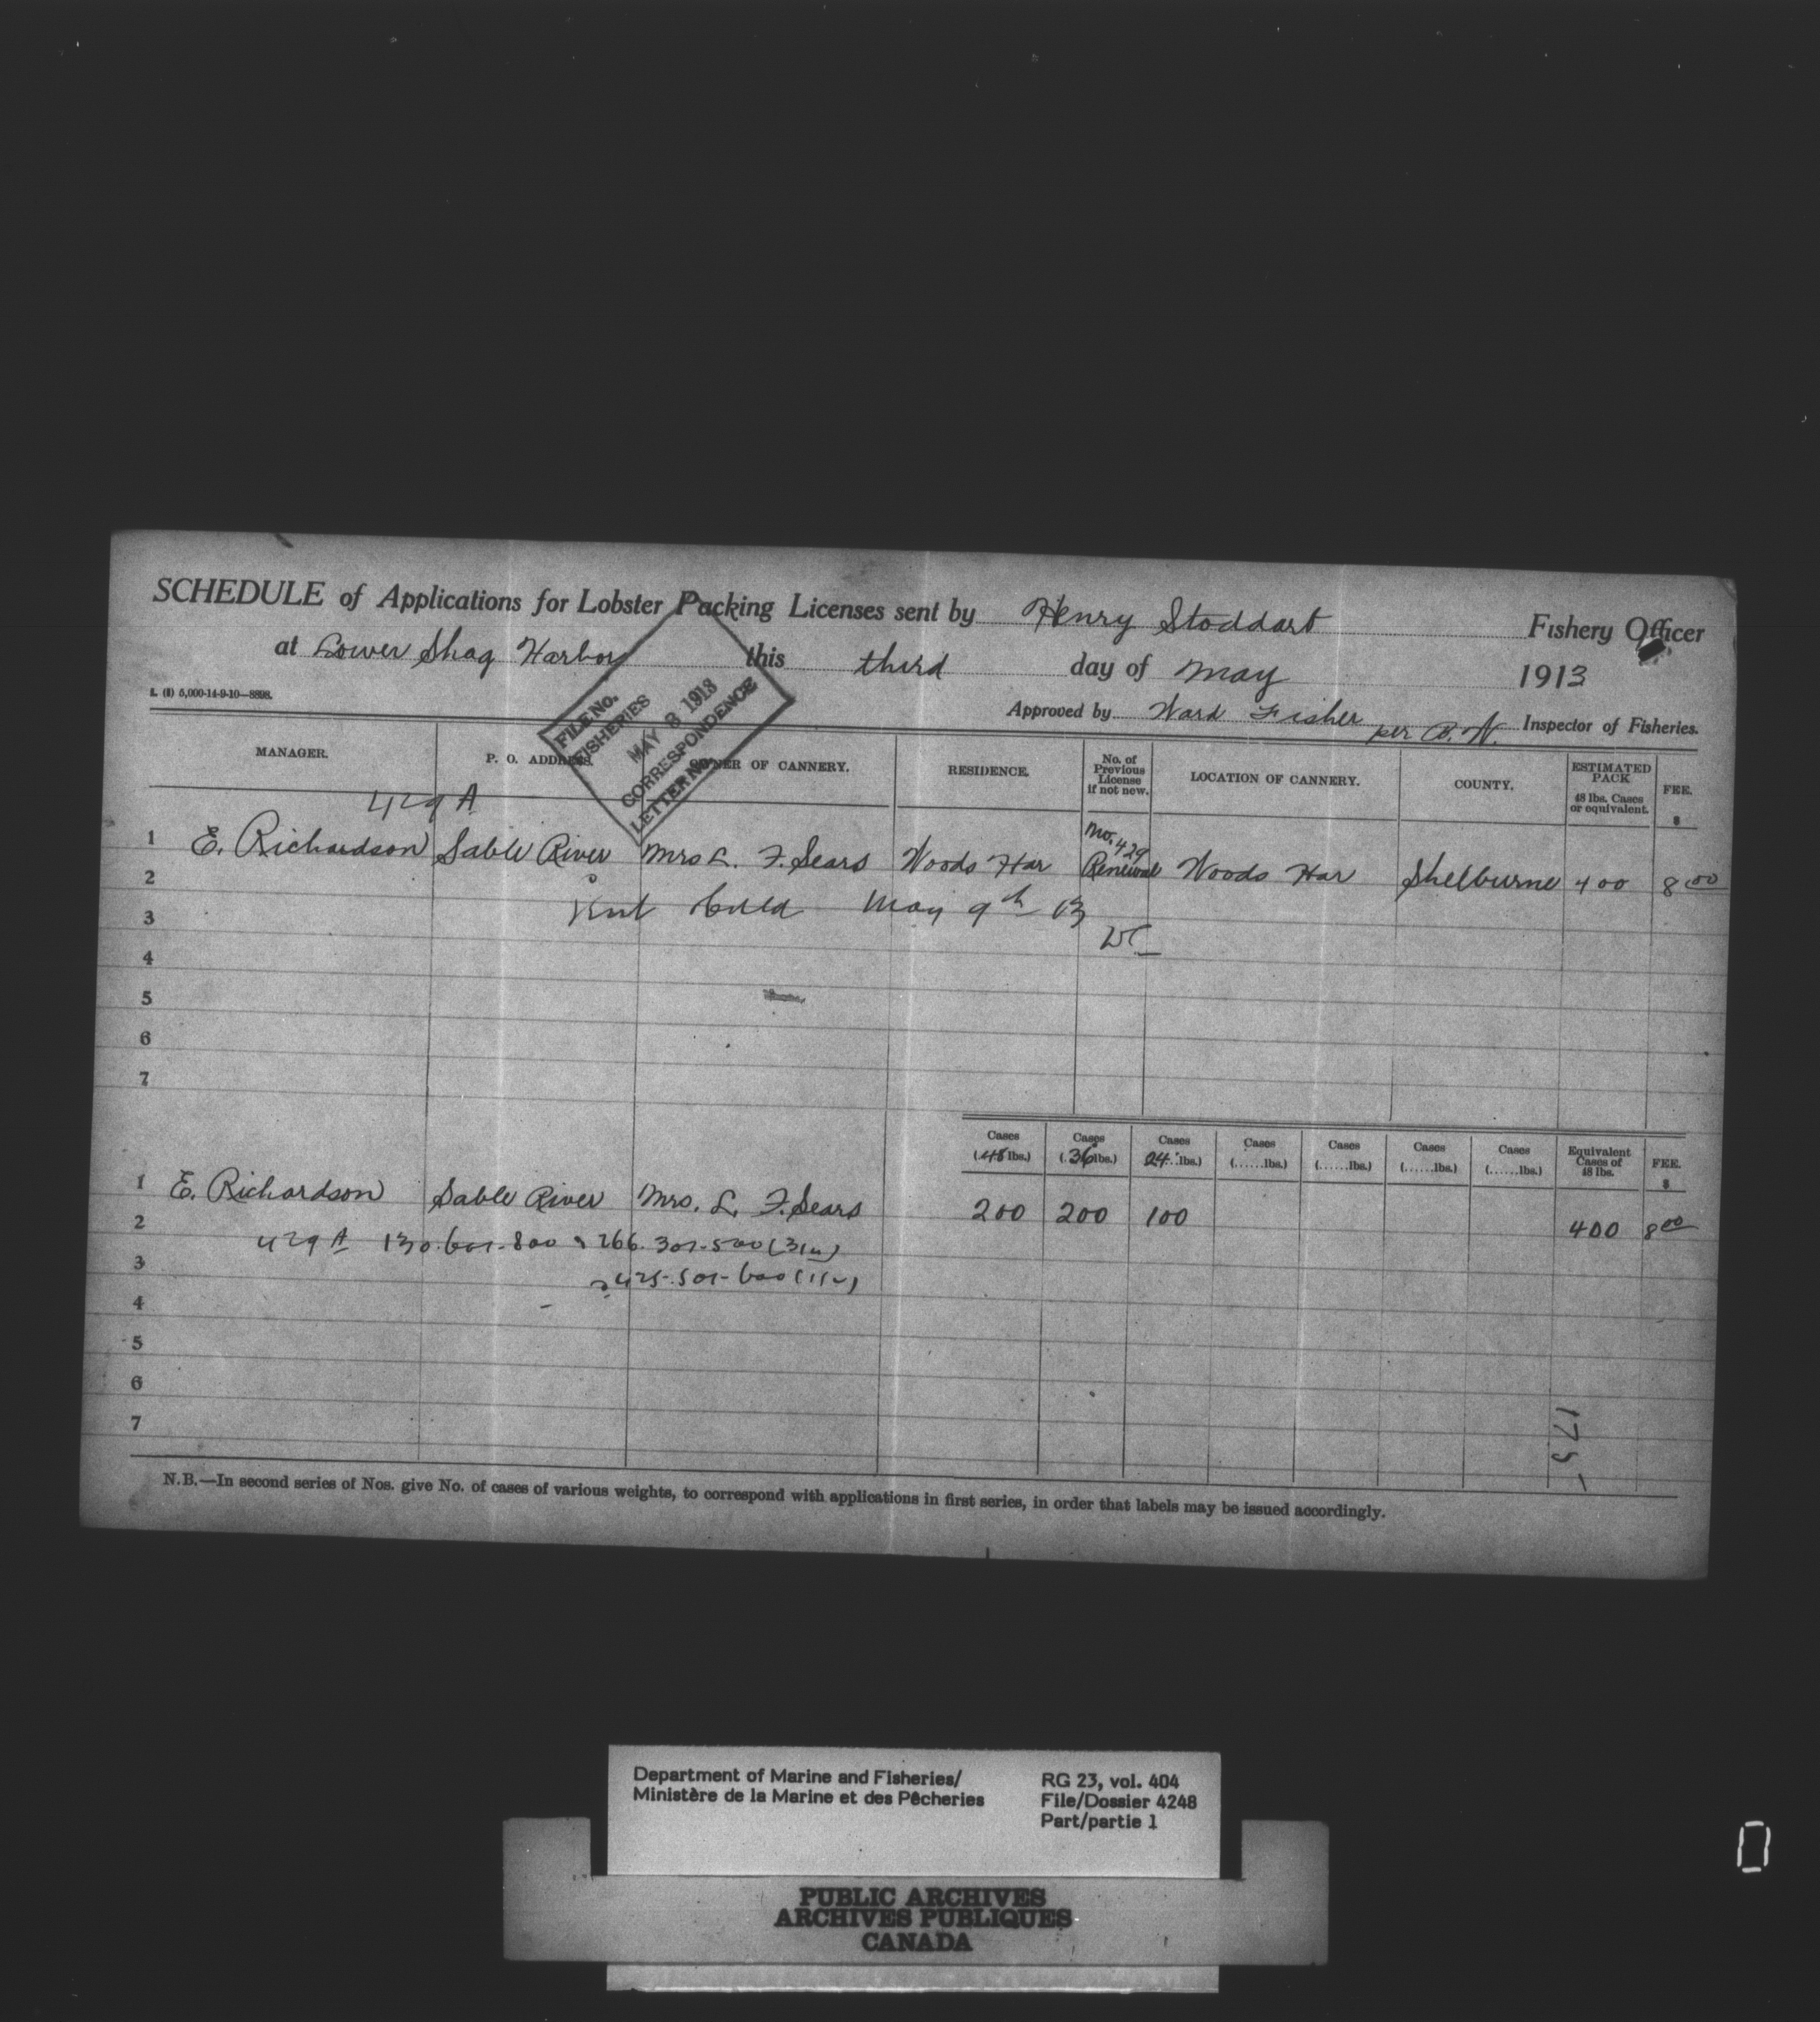 SCHEDULE of Applications for Lobster Packing Licenses sent by Henry Stoddart Fishery Officer
at Lower Shag Harbor this third day of May 1913
L (8) 5,000-14-9-10—8898.
Approved by Ward Fisher per B. W. Inspector of Fisheries.
FILE No.
FISHERIES
MAY 8 1913
CORRESPONDENCE
LETTER No.
MANAGER. P. O. ADDRESS. OWNER OF CANNERY. RESIDENCE. No. of Previous License if not new. LOCATION OF CANNERY. COUNTY. ESTIMATED PACK 48 lbs. Cases or equivalent. FEE. $
429 A
1 E. Richardson Sable River Mrs L. F. Sears Woods Har No. 429 Renewal Woods Har Shelburne 400 8 00
2
May 9th 13
3
4
5
6
7
Cases (48 lbs.) Cases (36 lbs.) Cases 24 lbs.) Cases (......lbs.) Cases (......lbs.) Cases (......lbs.) Cases (......lbs.) Equivalent Cases of 48 lbs. FEE. $
1 E. Richardson Sable River Mrs. L. F. Sears 200 200 100 400 8 00
2 429 A 130.601-800 266.301-500
3 425.501-600
4
5
6
7
175
N.B.—In second series of Nos. give No. of cases of various weights, to correspond with applications in first series, in order that labels may be issued accordingly.
Department of Marine and Fisheries/ RG 23, vol. 404
Ministère de la Marine et des Pêcheries File/Dossier 4248
Part/partie 1
PUBLIC ARCHIVES
ARCHIVES PUBLIQUES
CANADA